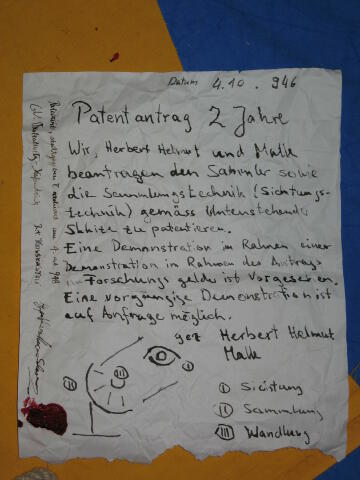 Datum 4.10.946
Patentantrag 2 Jahre
Wir, Herbert Helmut und Malk
beantragen den Sammler sowie
die Sammlungstechnik (Sichtungs-
technik) gemäss Untenstehende
Skizze zu patentieren.
Eine Demonstration im Rahmen einer
Demonstration in Rahmen des Antrags
Forschungsgelder ist vorgesehen.
Eine vorgängige Demonstration ist
auf Anfrage möglich.
gez Herbert Helmut
Malk
I Sichtung
II Sammlung
III Wandlung